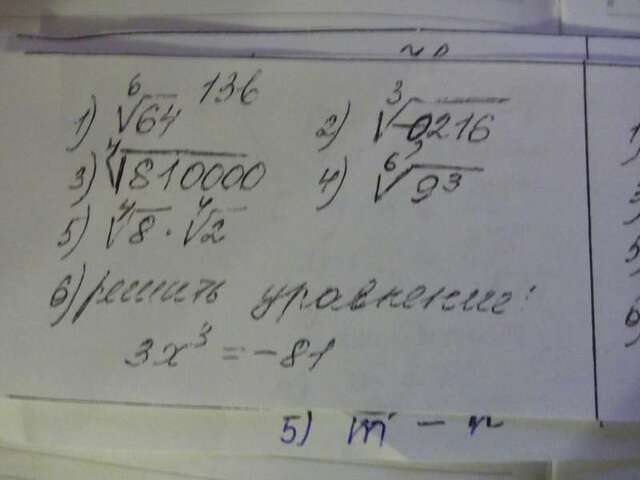 1) ⁶√64 136 2) ³√-0,216
3) ⁴√810000 4) ⁶√9³
5) ⁴√8 · ⁴√2
6) решить уравнение:
3x³ = -81
5) √m - n